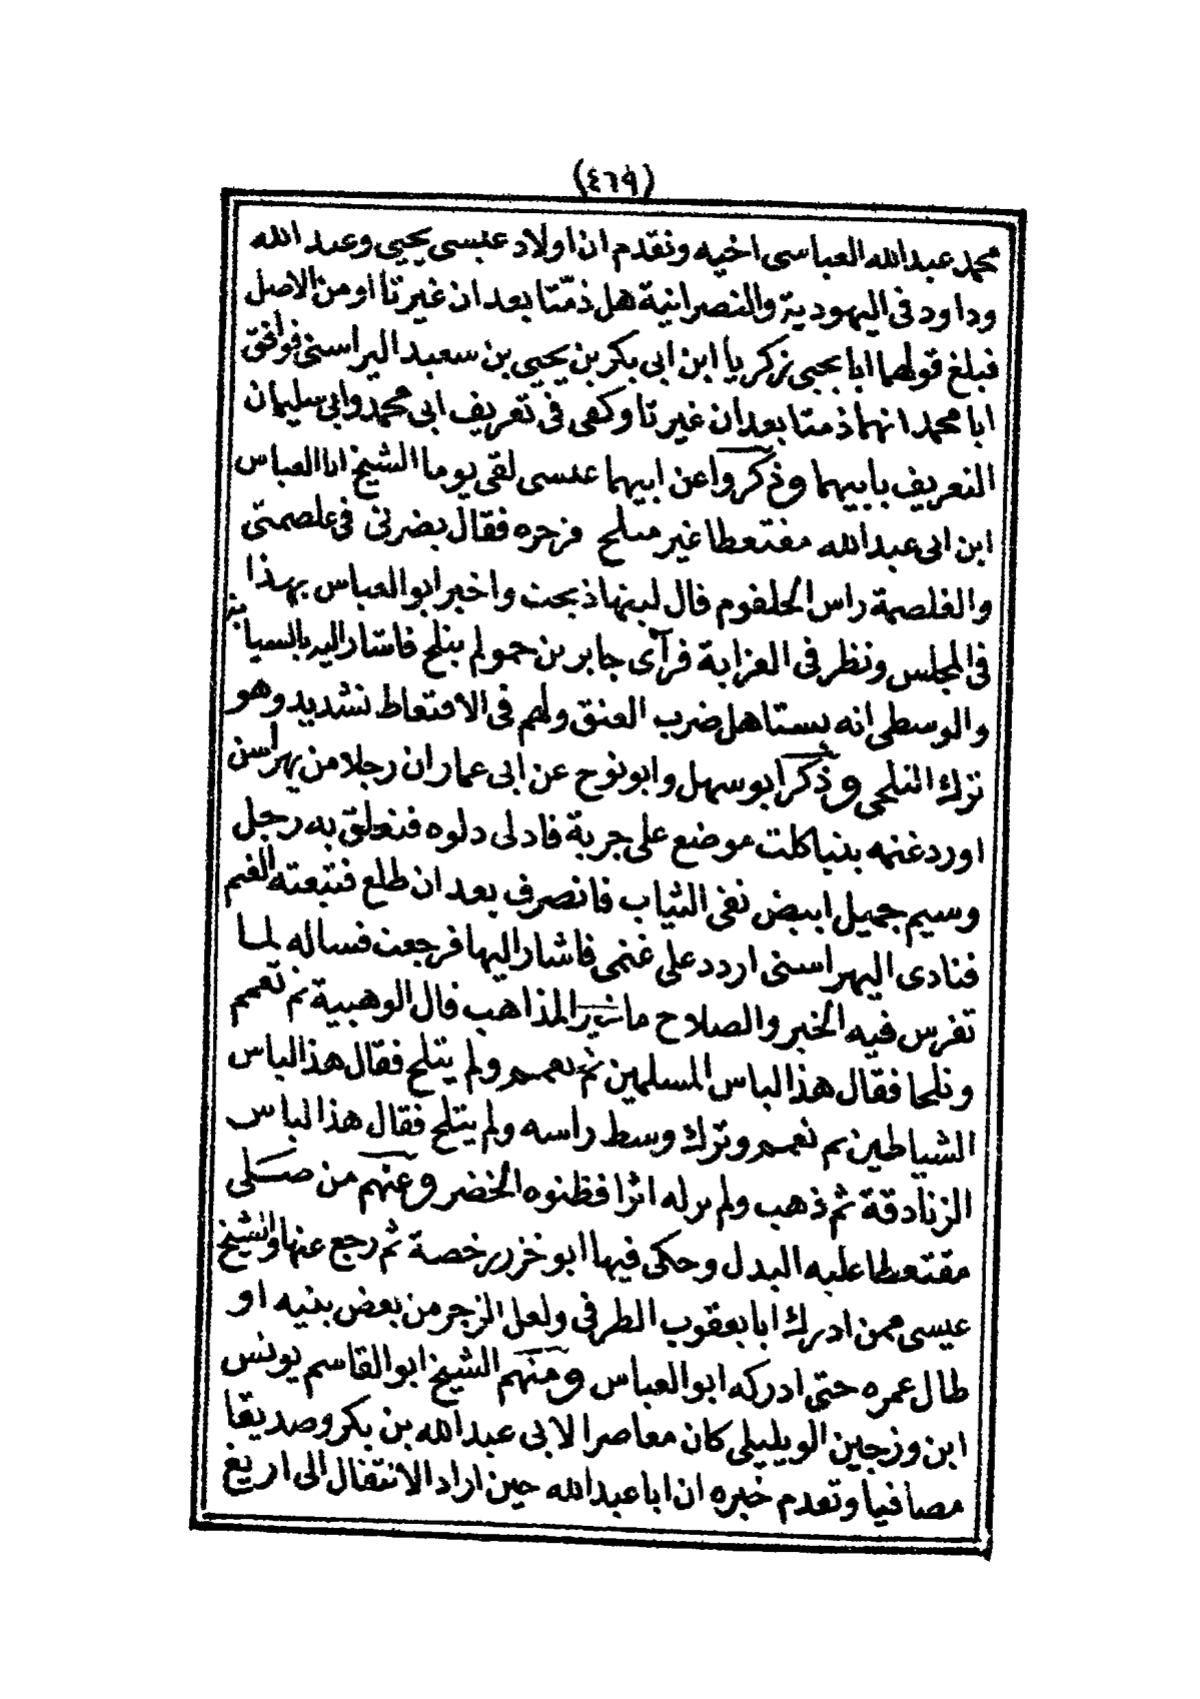 (٤٦٩)
محمد عبد الله العباسى اخيه وتقدم ان اولاد عيسى يحيى وعبد الله
وداود فى اليهودية والنصرانية هل ذمّتا بعد ان غيرتا او من الاصل
فبلغ قولهما ابا يحيى زكرياا ابن ابى بكر بن يحيى بن سعيد اليراسنى فوافق
ابا محمد انهما ذمتا بعد ان غيرتا وكفى فى تعريف ابى محمد وابى سليمان
التعريف بابيهما وذكروا عن ابيهما عيسى لقى يوما الشيخ ابا العباس
ابن ابى عبد الله مقتعطا غير متلح فزجره فقال يضرنى فى غلصمتى
والغلصمة راس الحلقوم قال ليتها ذبحت واخبر ابو العباس بهذا
فى المجلس ونظر فى العزابة فرآى جابر بن حمو لم يتلح فاشار اليه بالسبابة
والوسطى انه يستاهل ضرب العنق ولهم فى الاقتعاط تشديد وهو
ترك التلحى وذكر ابو سهل وابو نوح عن ابى عمار ان رجلا من يهراسن
اورد غنمه بتياكلت موضع على جربة فادلى دلوه فتعلق به رجل
وسيم جميل ابيض نقى الثياب فانصرف بعد ان طلع فتبعته الغنم
فنادى اليهراسنى اردد على غنمى فاشار اليها فرجعت فساله لما
تفرس فيه الخير والصلاح ما خير المذاهب قال الوهبية ثم تعمم
وتلحا فقال هذا لباس المسلمين ثم تعمم ولم يتلح فقال هذا لباس
الشياطين ثم تعمم وترك وسط راسه ولم يتلح فقال هذا لباس
الزنادقة ثم ذهب ولم ير له اثرا فظنوه الخضر وعنهم من صلى
مقتعطا عليه البدل وحكى فيها ابو خزر رخصة ثم رجع عنها والشيخ
عيسى ممن ادرك ابا يعقوب الطرفى ولعل الزجر من بعض بنيه او
طال عمره حتى ادركه ابو العباس ومنهم الشيخ ابو القاسم يونس
ابن وزجين الويليلى كان معاصرا لابى عبد الله بن بكر وصديقا
مصافيا وتقدم خبره ان ابا عبد الله حين اراد الانتقال الى اريغ